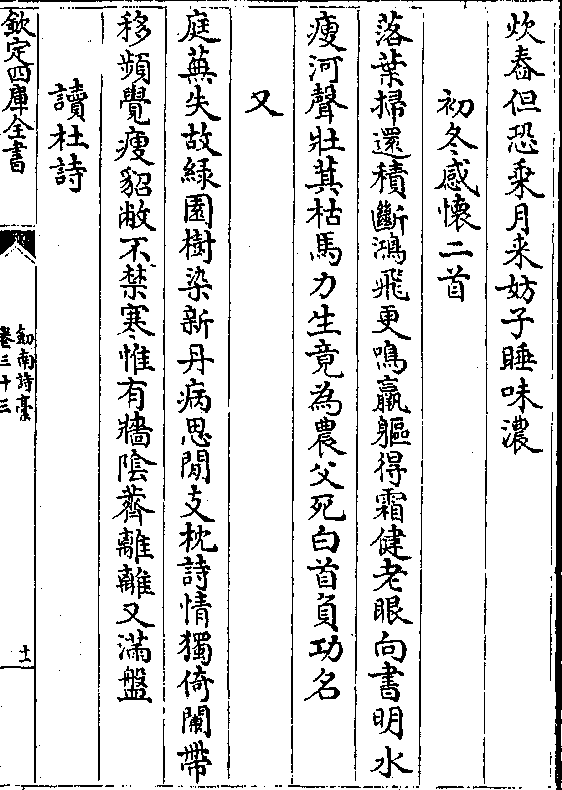 炊舂但恐乗月来妨子睡味濃
初冬感懐二首
落葉掃還積斷鴻飛更鳴羸軀得霜健老眼向書明水
瘦河聲壯萁枯馬力生竟為農父死白首負功名
又
庭蕪失故緑園樹染新丹病思閒支枕詩情獨倚闌帶
移頻覺瘦貂敝不禁寒惟有牆陰薺離離又滿盤
讀杜詩
欽定四庫全書
劔南詩藁
卷三十三
十二